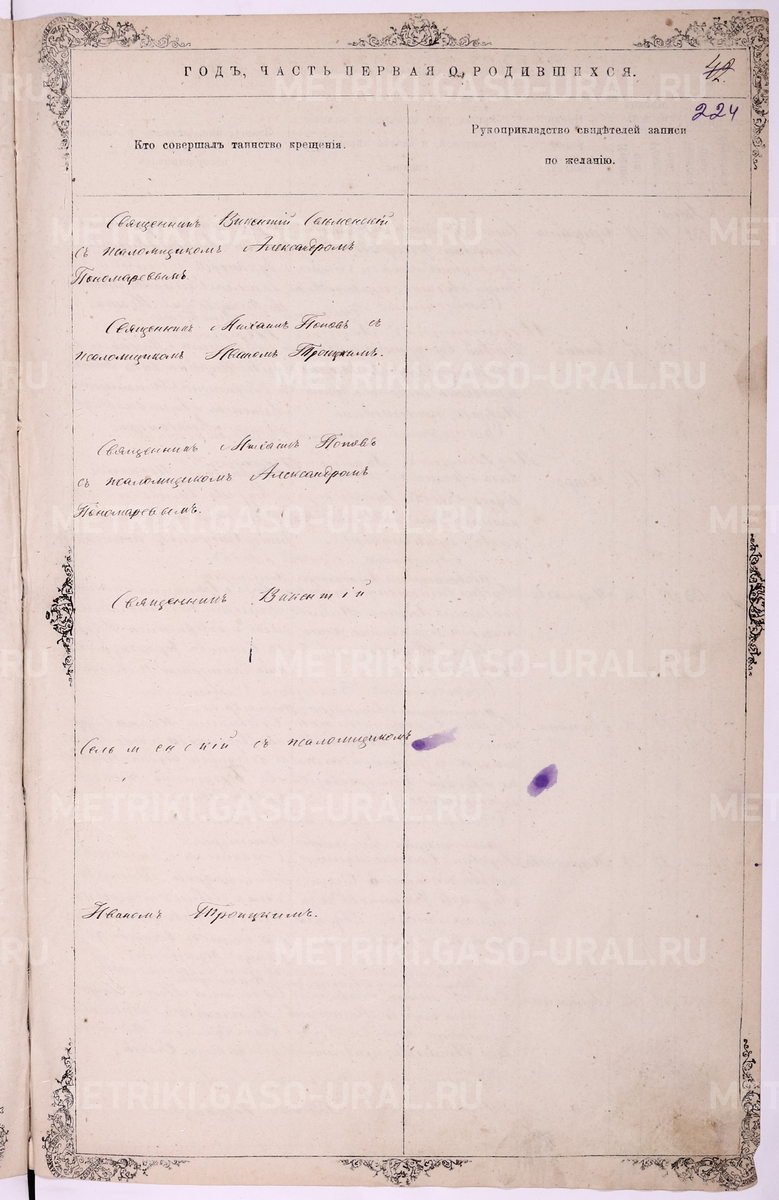 ГОДЪ, ЧАСТЬ ПЕРВАЯ О РОДИВШИХСЯ.
42
224
Кто совершалъ таинство крещенія.
Рукоприкладство свидѣтелей записи
по желанію.
Священникъ Викентій Сельменскій
съ псаломщикомъ Александромъ
Пономаревымъ.
Священникъ Михаилъ Поповъ съ
псаломщикомъ Иваномъ Троицкимъ.
Священникъ Михаилъ Поповъ
съ псаломщикомъ Александромъ
Пономаревымъ.
Священникъ Викентій
Сельменскій съ псаломщикомъ
Иваномъ Троицкимъ.
METRIKI.GASO-URAL.RU